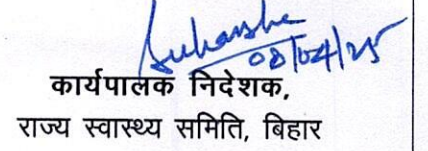 08/04/25
कार्यपालक निदेशक,
राज्य स्वास्थ्य समिति, बिहार